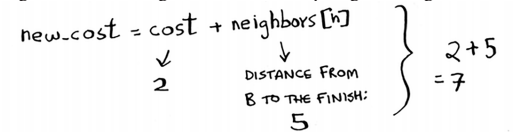 new_cost = cost + neighbors[n]
2
DISTANCE FROM
B TO THE FINISH:
5
2+5
=7